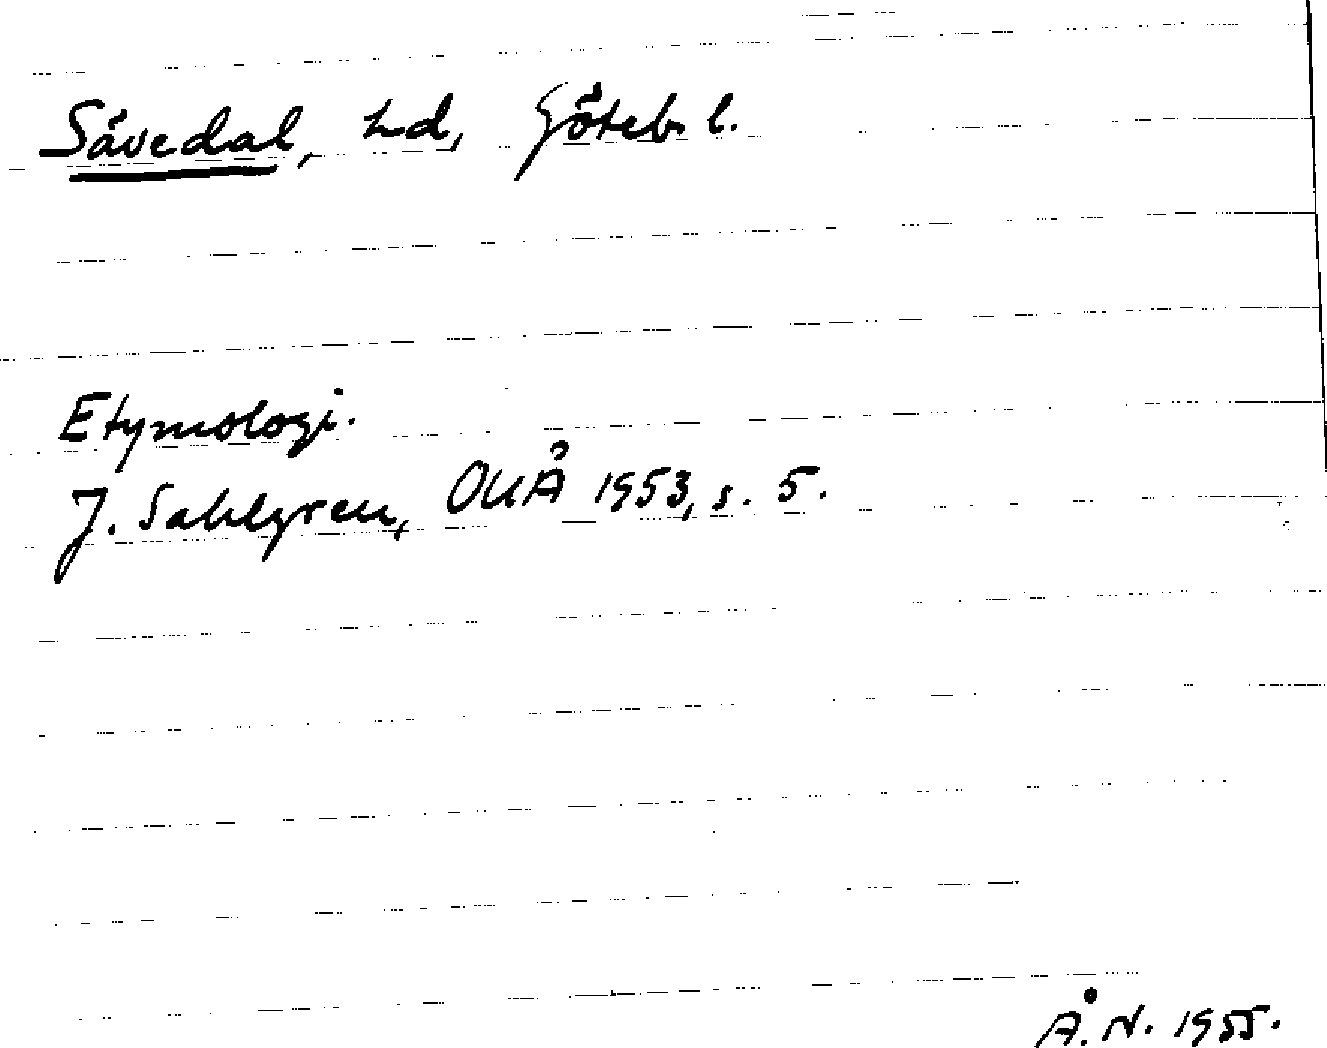 Sävedal, hd, Göteb. l.
Etymologi.
J. Sahlgren, OUÅ 1953, s. 5.
Å. N. 1955.